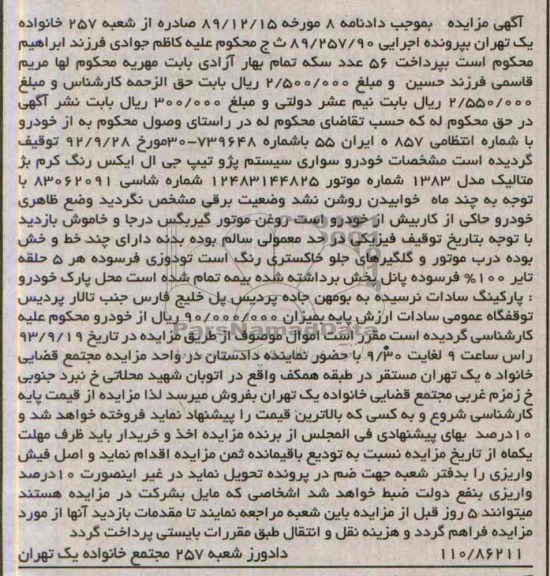 آگهی مزایده   بموجب دادنامه ۸ مورخه ۸۹/۱۲/۱۵ صادره از شعبه ۲۵۷ خانواده
یک تهران بپرونده اجرایی ۸۹/۲۵۷/۹۰ ث ج محکوم علیه کاظم جوادی فرزند ابراهیم
محکوم است بپرداخت ۵۶ عدد سکه تمام بهار آزادی بابت مهریه محکوم لها مریم
قاسمی فرزند حسین  و مبلغ ۲/۵۰۰/۰۰۰ ریال بابت حق الزحمه کارشناس و مبلغ
۲/۵۵۰/۰۰۰ ریال بابت نیم عشر دولتی و مبلغ ۳۰۰/۰۰۰ ریال بابت نشر آگهی
در حق محکوم له که حسب تقاضای محکوم له در راستای وصول محکوم به از خودرو
با شماره انتظامی ۸۵۷ ه ایران ۵۵ باشماره ۷۳۹۶۴۸-۳۰مورخ ۹۲/۹/۲۸ توقیف
گردیده است مشخصات خودرو سواری سیستم پژو تیپ جی ال ایکس رنگ کرم بژ
متالیک مدل ۱۳۸۳ شماره موتور ۱۲۴۸۳۱۴۴۸۲۵ شماره شاسی ۸۳۰۶۲۰۹۱ با
توجه به چند ماه  خوابیدن روشن نشد وضعیت برقی مشخص نگردید وضع ظاهری
خودرو حاکی از کاربیش از خودرو است روغن موتور گیربگس درجا و خاموش بازدید
با توجه بتاریخ توقیف فیزیکی در حد معمولی سالم بوده بدنه دارای چند خط و خش
بوده درب موتور و گلگیرهای جلو خاکستری رنگ است تودوزی فرسوده هر ۵ حلقه
تایر ۱۰۰% فرسوده پانل پخش برداشته شده بیمه تمام شده است محل پارک خودرو
: پارکینگ سادات نرسیده به بومهن جاده پردیس پل خلیج فارس جنب تالار پردیس
توقفگاه عمومی سادات ارزش پایه بمیزان ۹۰/۰۰۰/۰۰۰ ریال از خودرو محکوم علیه
کارشناسی گردیده است مقرر است اموال موصوف از طریق مزایده در تاریخ ۹۳/۹/۱۹
راس ساعت ۹ لغایت ۹/۳۰ با حضور نماینده دادستان در واحد مزایده مجتمع قضایی
خانواد ه یک تهران مستقر در طبقه همکف واقع در اتوبان شهید محلاتی خ نبرد جنوبی
خ زمزم غربی مجتمع قضایی خانواده یک تهران بفروش میرسد لذا مزایده از قیمت پایه
کارشناسی شروع و به کسی که بالاترین قیمت را پیشنهاد نماید فروخته خواهد شد و
۱۰درصد  بهای پیشنهادی فی المجلس از برنده مزایده اخذ و خریدار باید ظرف مهلت
یکماه از تاریخ مزایده نسبت به تودیع باقیمانده ثمن مزایده اقدام نماید و اصل فیش
واریزی را بدفتر شعبه جهت ضم در پرونده تحویل نماید در غیر اینصورت ۱۰درصد
واریزی بنفع دولت ضبط خواهد شد اشخاصی که مایل بشرکت در مزایده هستند
میتوانند ۵ روز قبل از مزایده باین شعبه مراجعه نمایند تا مقدمات بازدید آنها از مورد
مزایده فراهم گردد و هزینه نقل و انتقال طبق مقررات بایستی پرداخت گردد
۱۱۰/۸۶۲۱۱   دادورز شعبه ۲۵۷ مجتمع خانواده یک تهران
ParsNamadData